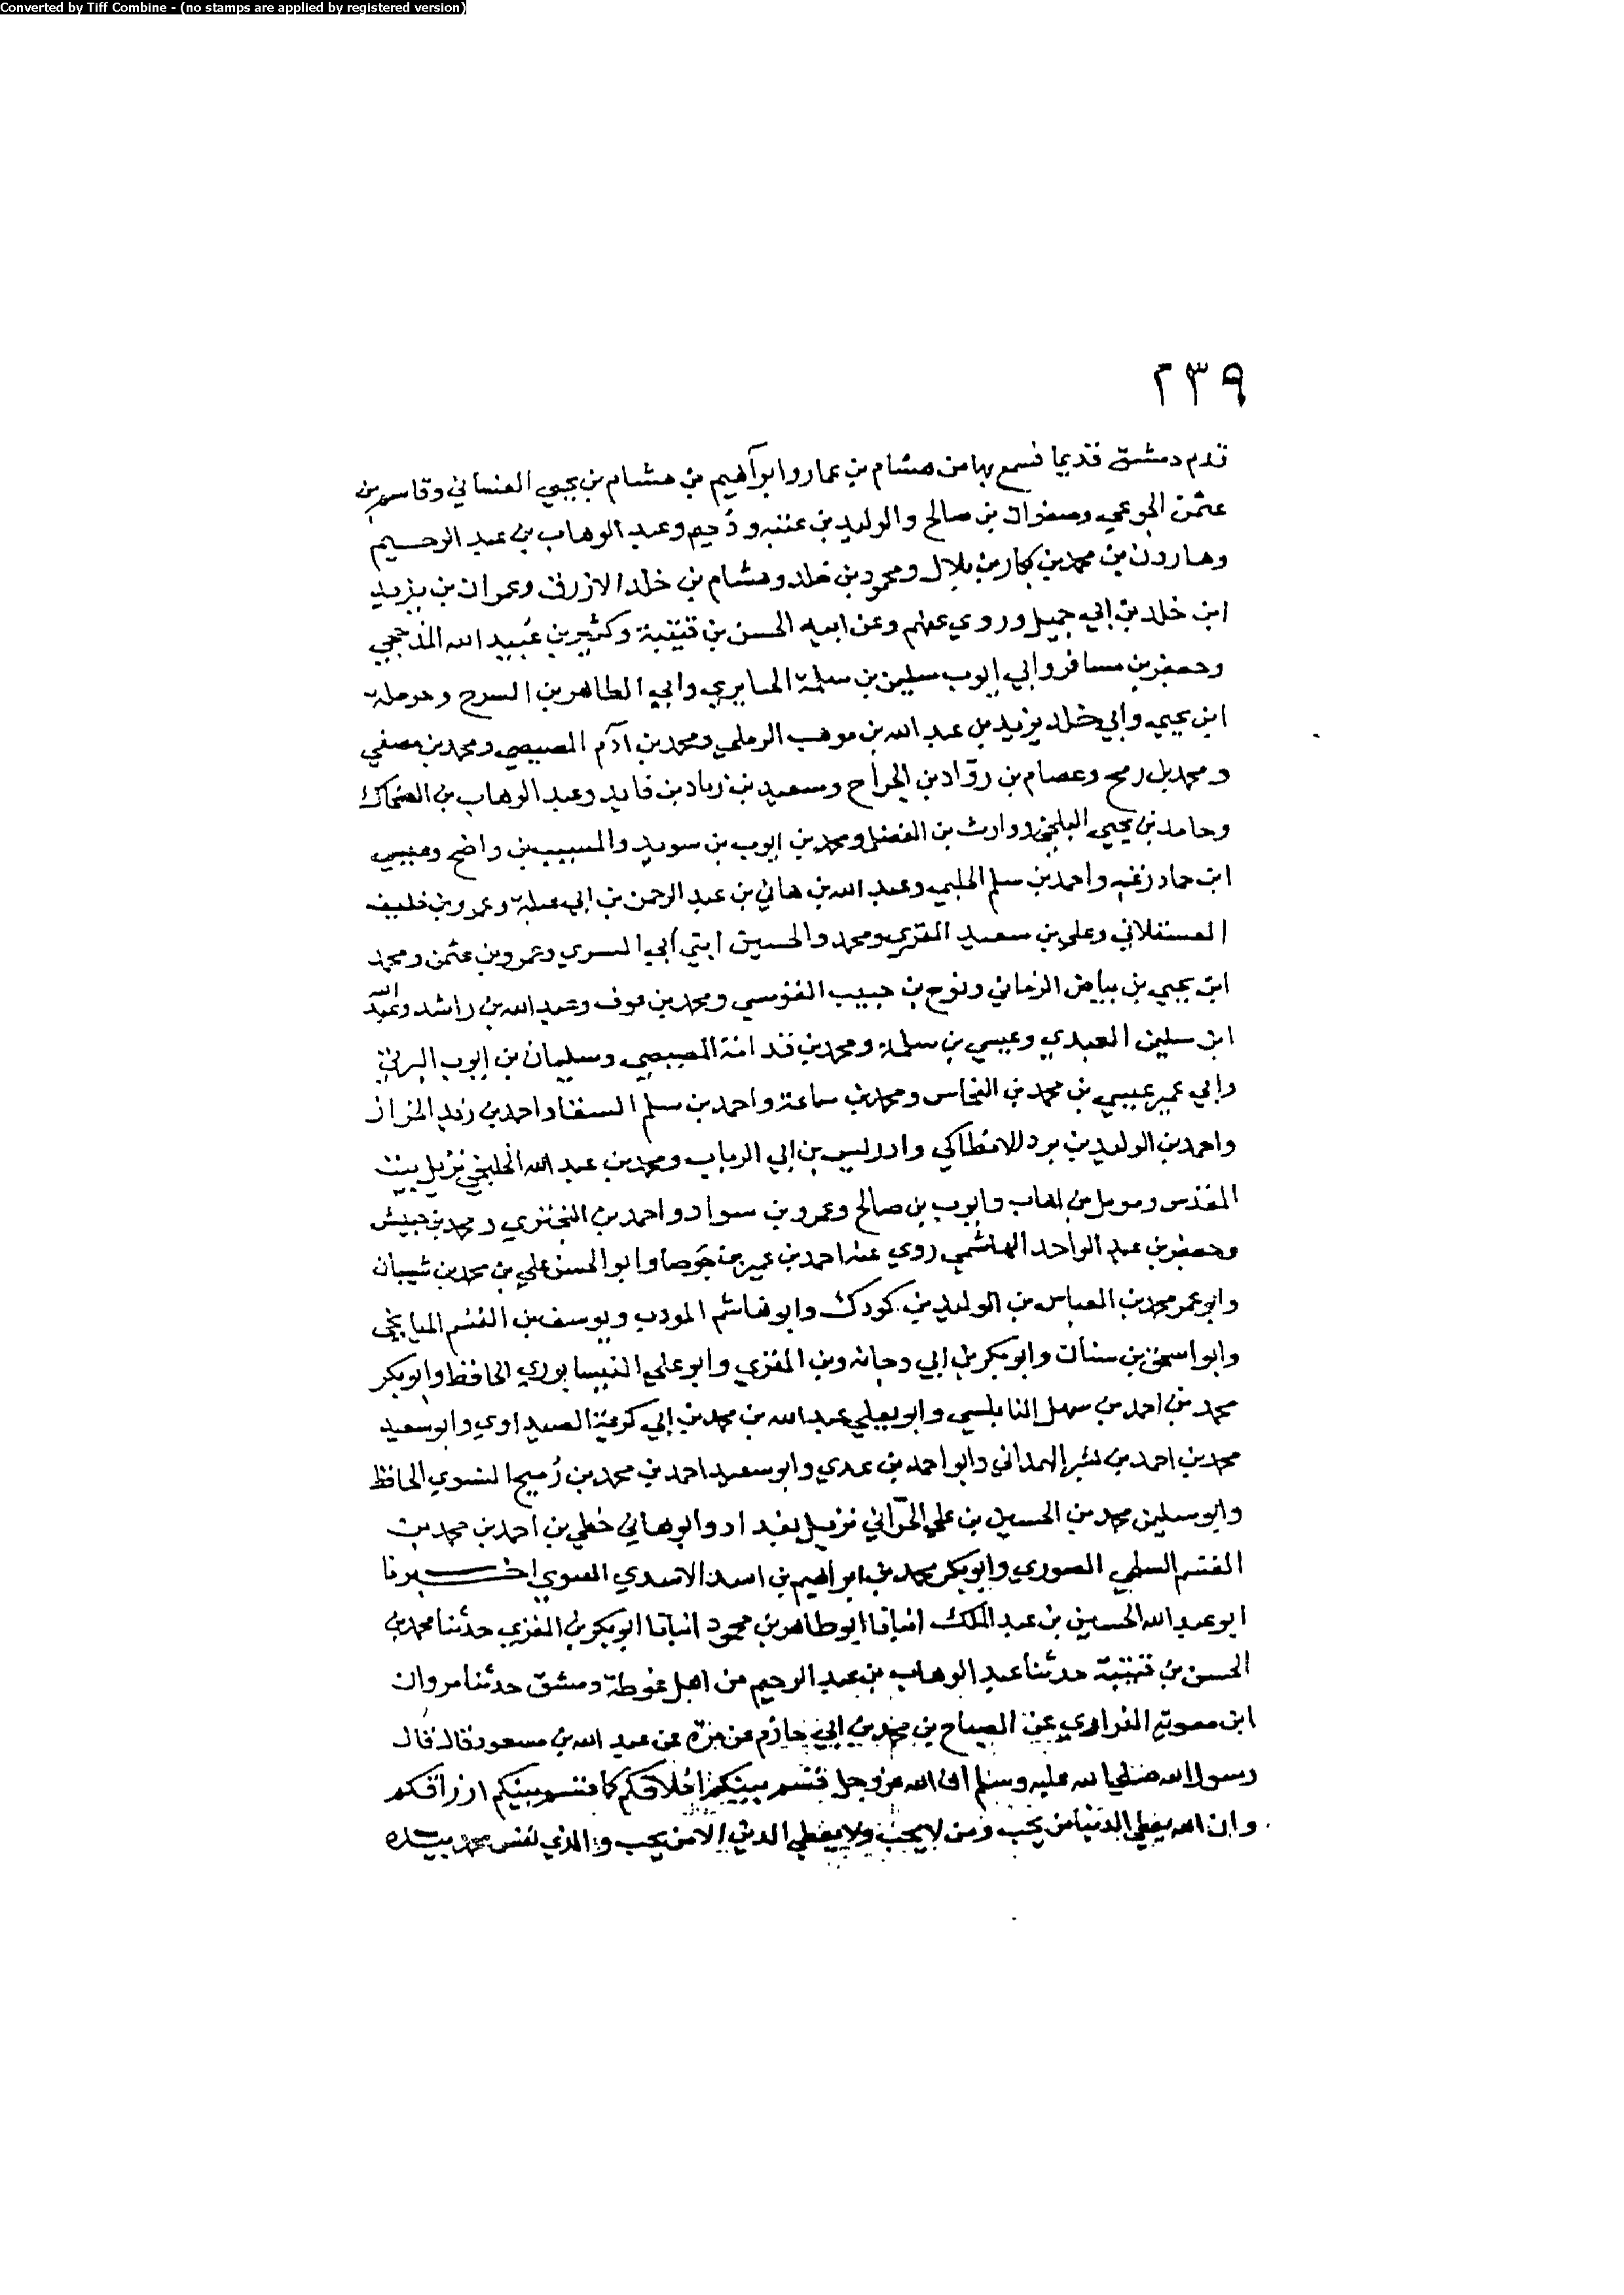 Converted by Tiff Combine - (no stamps are applied by registered version)
٢٣٩
قدم دمشق قديما فسمع بها من هشام بن عمار وابراهيم بن هشام بن يحيى الغساني وقاسم بن
عثمن الجوعي وصفوان بن صالح والوليد بن عتبه ودحيم وعبد الوهاب بن عبد الرحيم
وهارون بن محمد بن بكار بن بلال ومحمود بن خلد وهشام بن خلد الازرق وعمران بن يزيد
ابن خلد بن ابي جميل وروى عنهم وعن ابيه الحسن بن قتيبة وكثير بن عبيد الله المذحجي
وجعفر بن مسافر وابي ايوب سليمن بن سلمة الخبايري وابي الطاهر بن السرح وحرملة
ابن يحيى وابي خلد يزيد بن عبد الله بن موهب الرملي ومحمد بن آدم المصيصي ومحمد بن مصفي
ومحمد بن رمح وعصام بن روّاد بن الجراح وسعيد بن زياد بن فايد وعبد الوهاب بن الضحاك
وحامد بن يحيى البلخي ووارث بن الفضل ومحمد بن ايوب بن سويد والمسيب بن واضح وعيسى
ابن حماد زغبه واحمد بن سلم الحلبي وعبد الله بن هاني بن عبد الرحمن بن ابي عبلة وعمرو بن خليف
العسقلاني وعلي بن سعيد المقري ومحمد والحسين ابني ابي السري وعمرو بن عثمن ومحمد
ابن يحيى بن بياض الزماني ونوح بن حبيب القومسي ومحمد بن عوف وعبد الله بن راشد وعبد الله
ابن سليمن العبدي وعيسى بن سلمة ومحمد بن قدامة المصيصي وسليمان بن ايوب
وابي عمير عيسى بن محمد بن النحاس ومحمد بن سماعة واحمد بن سلم السقا واحمد بن زيد الخزاز
واحمد بن الوليد بن برد الانطاكي وادريس بن ابي الرباب ومحمد بن عبد الله الخليجي نزيل بيت
المقدس ومومل بن اهاب وايوب بن صالح وعمرو بن سواد واحمد بن البختري ومحمد بن حبيش
وجعفر بن عبد الواحد الهاشمي روى عنه احمد بن عمير بن جوصا وابو الحسن علي بن محمد بن شيبان
وابو عمر محمد بن العباس بن الوليد بن كودك وابو هاشم المودب ويوسف بن القسم الميانجي
وابو اسحق بن سنان وابو بكر بن ابي دجانة وبن المقري وابو علي النيسابوري الحافظ وابو بكر
محمد بن احمد بن سهل النابلسي وابو يعلى عبد الله بن محمد بن ابي كريمة الصيداوي وابو سعيد
محمد بن احمد بن بشر الهمداني وابو احمد بن عدي وابو سعيد احمد بن محمد بن رُميح النسوي الحافظ
وابو سليمن محمد بن الحسين بن علي الحرّاني نزيل بغداد وابو هاني خطي بن احمد بن محمد بن
القسم السلمي الصوري وابو بكر محمد بن ابراهيم بن اسد الاسدي الصوري اخبرنا
ابو عبد الله الحسين بن عبد الملك انبانا ابو طاهر بن محمود انبانا ابو بكر بن المقري حدثنا محمد بن
الحسن بن قتيبة حدثنا عبد الوهاب بن عبد الرحيم من اهل غوطة دمشق حدثنا مروان
ابن معوية الفزاري عن الصباح بن محمد بن ابي حازم عن مرة عن عبد الله بن مسعود قال قال
رسول الله صلى الله عليه وسلم ان الله عز وجل قسم بينكم اخلاقكم كما قسم بينكم ارزاقكم
وان الله يعطي الدنيا من يحب ومن لا يحب ولا يعطي الدين الا من يحب والذي نفس محمد بيده